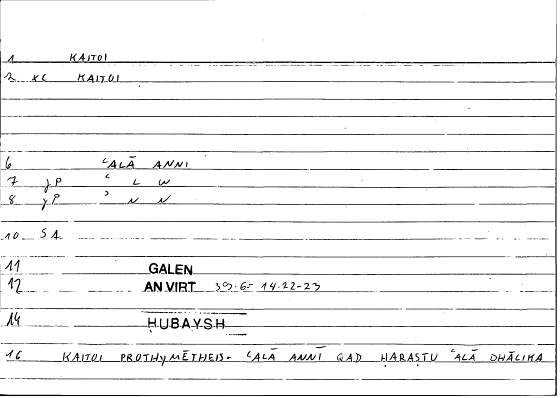 1 KAITOI
2 xc KAITOI
6 ʿALĀ ANNI
7 yP ʿ L W
8 yP ʾ N N
10 SA
11 GALEN
12 AN VIRT 14.22-23
14 ḤUBAYSH
16 KAITOI PROTHYMĒTHEIS- ʿALĀ ANNĪ QAD ḤARAṢTU ʿALĀ DHĀLIKA